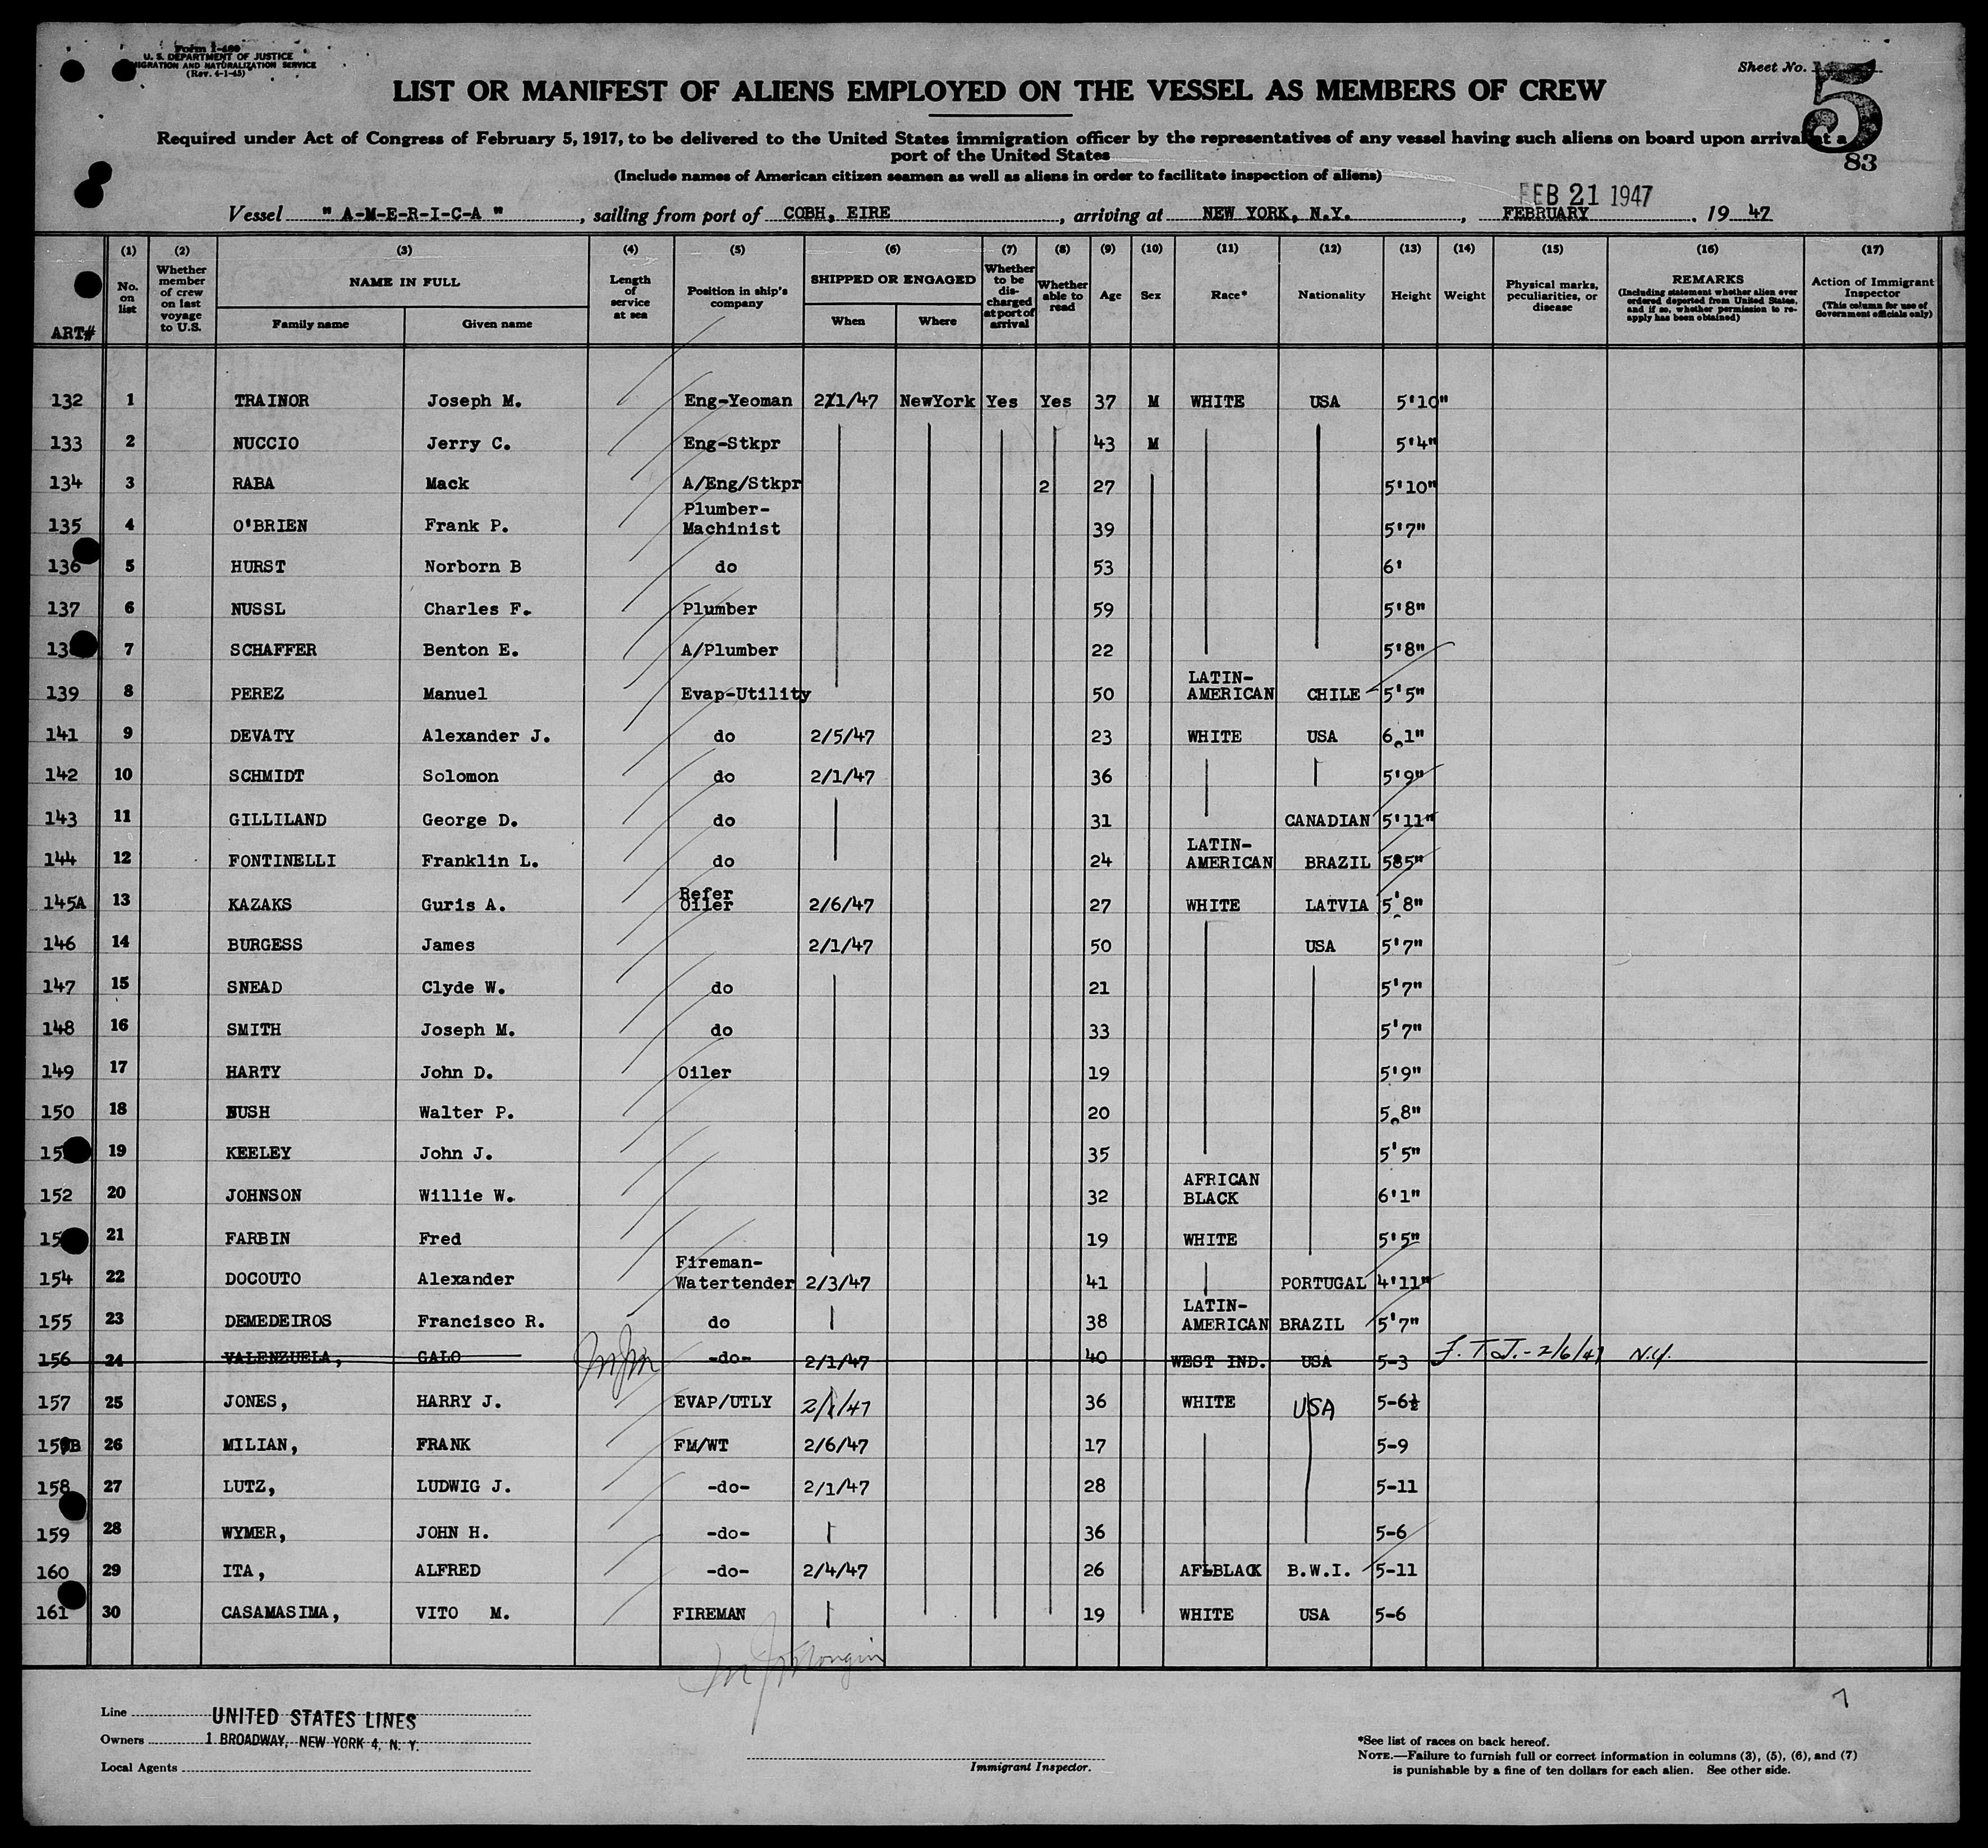 Form I-480
U. S. DEPARTMENT OF JUSTICE
IMMIGRATION AND NATURALIZATION SERVICE
(Rev. 4-1-45)
Sheet No.
5
83
LIST OR MANIFEST OF ALIENS EMPLOYED ON THE VESSEL AS MEMBERS OF CREW
Required under Act of Congress of February 5, 1917, to be delivered to the United States immigration officer by the representatives of any vessel having such aliens on board upon arrival at a
port of the United States
(Include names of American citizen seamen as well as aliens in order to facilitate inspection of aliens)
FEB 21 1947
Vessel " A-M-E-R-I-C-A " , sailing from port of COBH, EIRE , arriving at NEW YORK, N.Y. , FEBRUARY , 19 47
(1) (2) (3) (4) (5) (6) (7) (8) (9) (10) (11) (12) (13) (14) (15) (16) (17)
ART# No. on list Whether member of crew on last voyage to U.S. NAME IN FULL Family name Given name Length of service at sea Position in ship's company SHIPPED OR ENGAGED When Where Whether to be discharged at port of arrival Whether able to read Age Sex Race* Nationality Height Weight Physical marks, peculiarities, or disease REMARKS (Including statement whether alien ever ordered deported from United States, and if so, whether permission to reapply has been obtained) Action of Immigrant Inspector (This column for use of Government officials only)
132 1 TRAINOR Joseph M. Eng-Yeoman 2/1/47 NewYork Yes Yes 37 M WHITE USA 5'10"
133 2 NUCCIO Jerry C. Eng-Stkpr 43 M 5'4"
134 3 RABA Mack A/Eng/Stkpr 2 27 5'10"
135 4 O'BRIEN Frank P. Plumber-Machinist 39 5'7"
136 5 HURST Norborn B do 53 6'
137 6 NUSSL Charles F. Plumber 59 5'8"
13 7 SCHAFFER Benton E. A/Plumber 22 5'8"
139 8 PEREZ Manuel Evap-Utility 50 LATIN-AMERICAN CHILE 5'5"
141 9 DEVATY Alexander J. do 2/5/47 23 WHITE USA 6.1"
142 10 SCHMIDT Solomon do 2/1/47 36 5'9"
143 11 GILLILAND George D. do 31 CANADIAN 5'11"
144 12 FONTINELLI Franklin L. do 24 LATIN-AMERICAN BRAZIL 5'5"
145A 13 KAZAKS Guris A. Refer Oiler 2/6/47 27 WHITE LATVIA 5'8"
146 14 BURGESS James 2/1/47 50 USA 5'7"
147 15 SNEAD Clyde W. do 21 5'7"
148 16 SMITH Joseph M. do 33 5'7"
149 17 HARTY John D. Oiler 19 5'9"
150 18 BUSH Walter P. 20 5.8"
15 19 KEELEY John J. 35 5'5"
152 20 JOHNSON Willie W. 32 AFRICAN BLACK 6'1"
15 21 FARBIN Fred 19 WHITE 5'5"
154 22 DOCOUTO Alexander Fireman-Watertender 2/3/47 41 PORTUGAL 4'11"
155 23 DEMEDEIROS Francisco R. do 38 LATIN-AMERICAN BRAZIL 5'7"
156 24 VALENZUELA, GALO -do- 2/1/47 40 WEST IND. USA 5-3 F.T.J.-2/6/47 N.Y.
157 25 JONES, HARRY J. EVAP/UTLY 2/1/47 36 WHITE USA 5-6½
26 MILIAN, FRANK FM/WT 2/6/47 17 5-9
158 27 LUTZ, LUDWIG J. -do- 2/1/47 28 5-11
159 28 WYMER, JOHN H. -do- 36 5-6
160 29 ITA, ALFRED -do- 2/4/47 26 AF.BLACK B.W.I. 5-11
161 30 CASAMASIMA, VITO M. FIREMAN 19 WHITE USA 5-6
Line UNITED STATES LINES
Owners 1 BROADWAY, NEW YORK 4, N. Y.
Local Agents
Immigrant Inspector.
*See list of races on back hereof.
NOTE.—Failure to furnish full or correct information in columns (3), (5), (6), and (7)
is punishable by a fine of ten dollars for each alien. See other side.